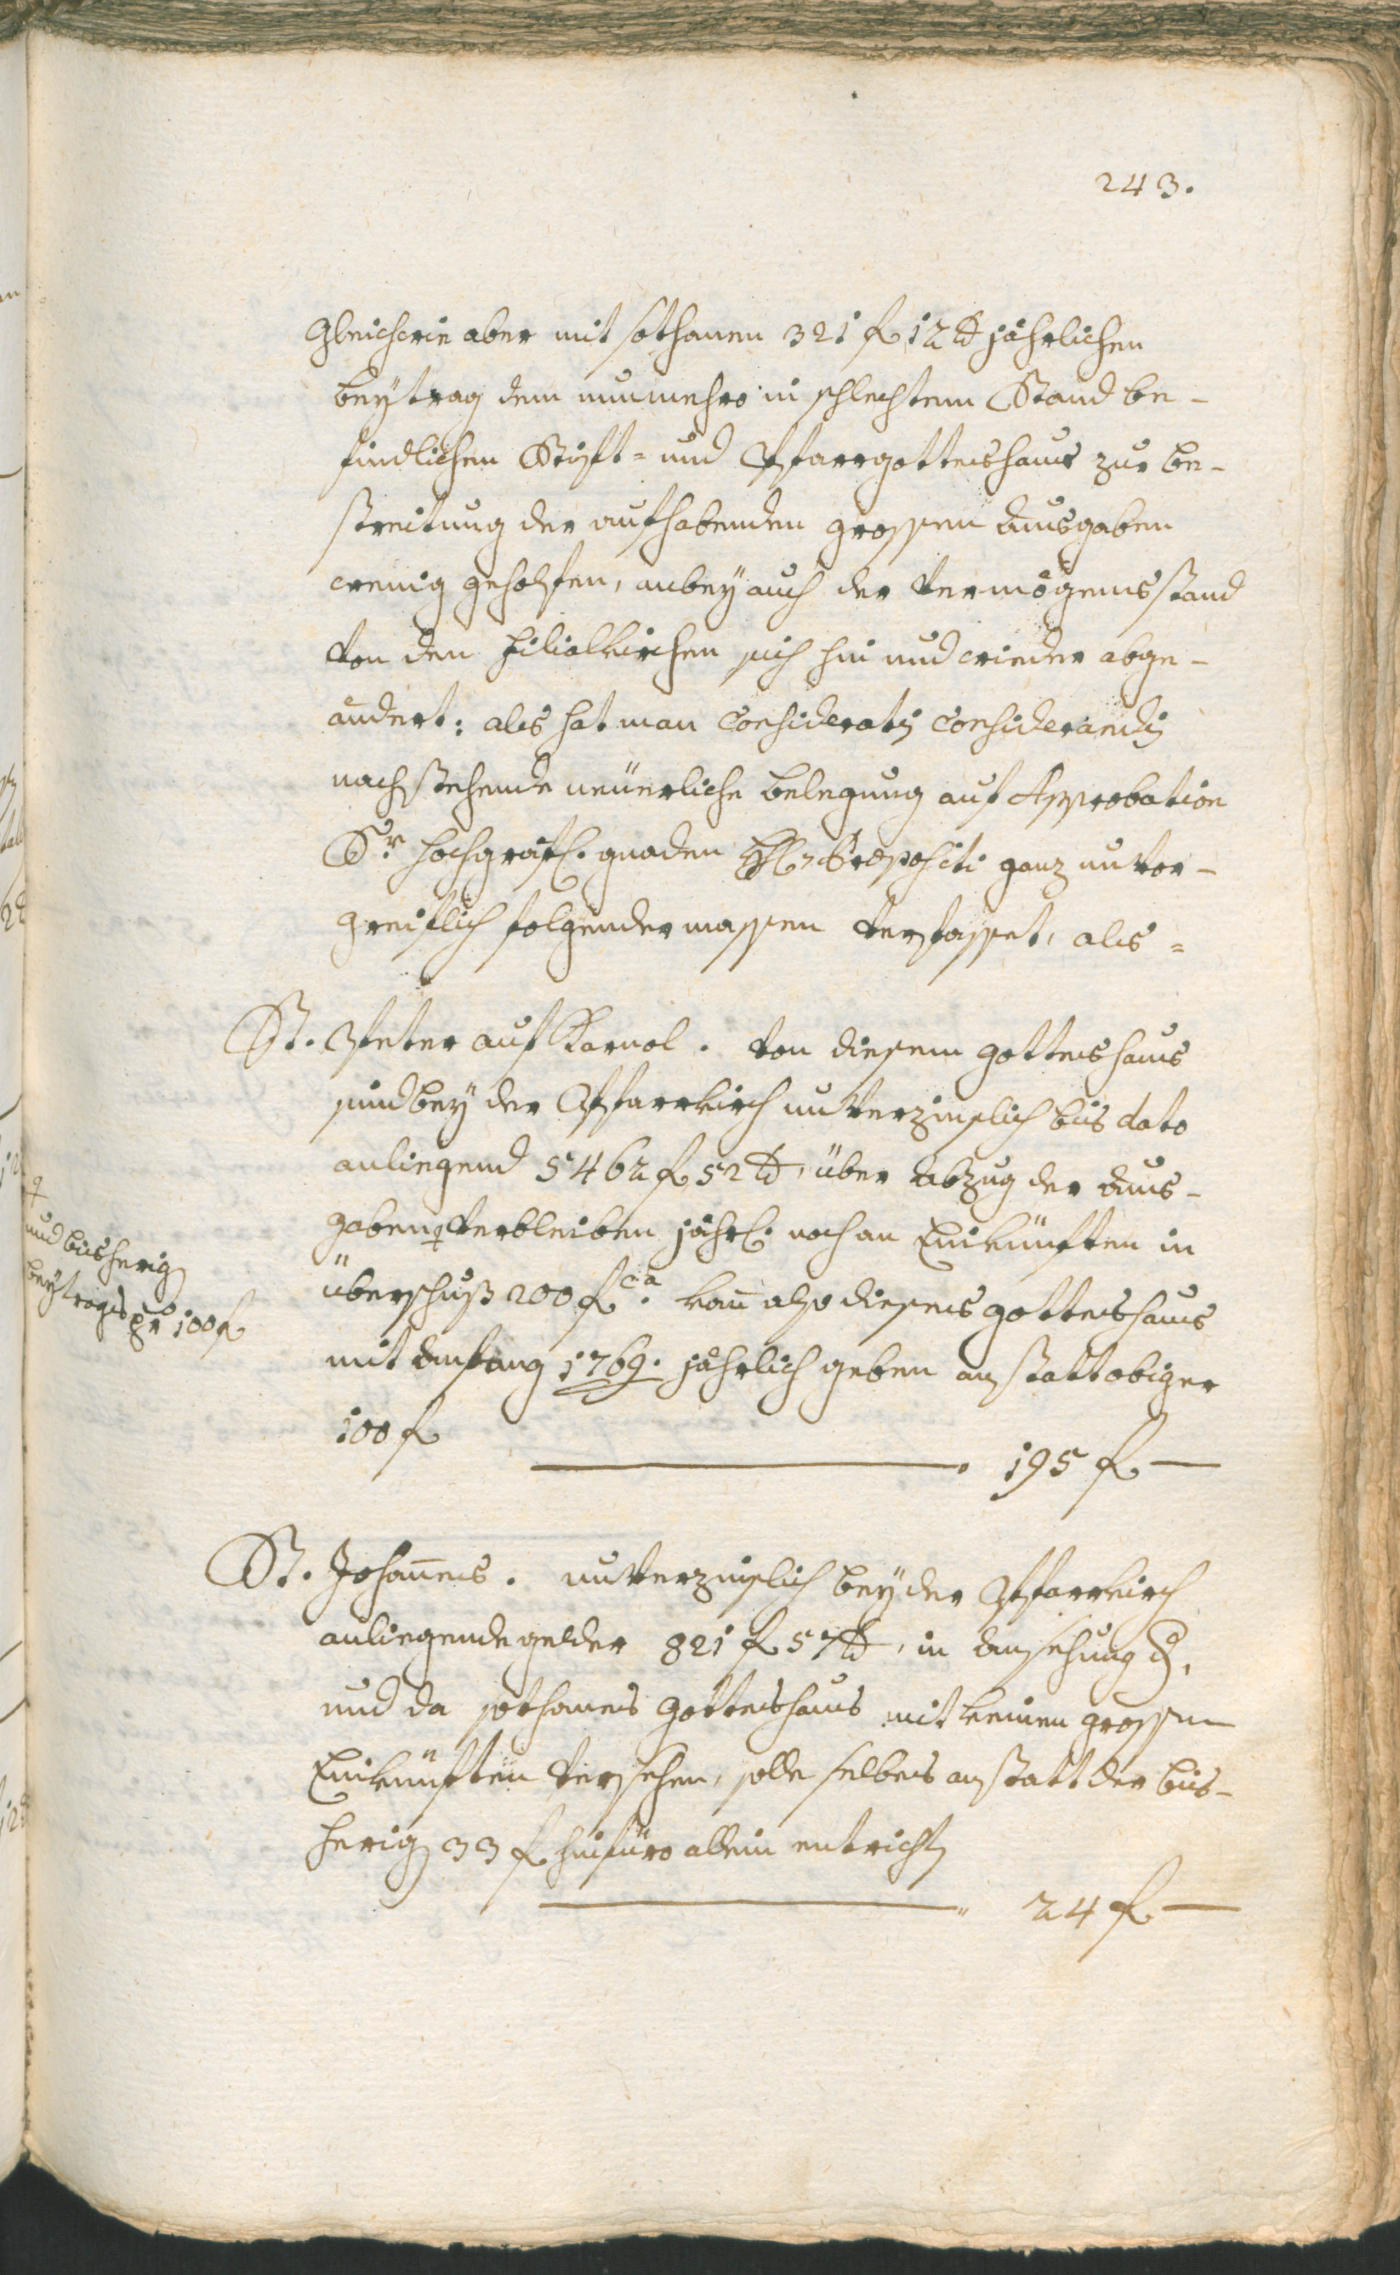 243.
Gleichwie aber mit sothanen 321 f 12 d jährlichen
beytrag dem nunmehro in schlechtem Stand be-
findlichen Stift= und Pfarrgotteshaus zur be-
streitung der aufhabenden grossen Ausgaben
wenig geholfen, anbey auch der Vermögensstand
von den Filialkirchen sich hin und wieder abge-
ändert: als hat man Consideratis Considerandis
nachstehende neüerliche belegung auf Approbation
Sr hochgräfl. gnaden H. Praepositi ganz unvor-
greiflich folgendermassen verfasset, als =
St. Peter auf Karnol. Von diesem Gotteshaus
sind bey der Pfarrkirch unverzinslich bis dato
anliegend 5462 f 52 d, über Abzug der Aus-
gaben verbleiben jährl. noch an Einkünften in
und bisherig
beytrags pr 100 f
überschuß 200 f ca. kan also dieses Gotteshaus
mit Anfang 1769. jährlich geben anstatt obiger
100 f
195 f —
St. Johannes. unverzinslich bey der Pfarrkirch
anliegende gelder 821 f 57 d, in Ansehung d.,
und da sothanes Gotteshaus mit keinen grossen
Einkünften versehen, solle selbes anstatt der bis-
herig 33 f hinfüro allein entrichten
24 f —